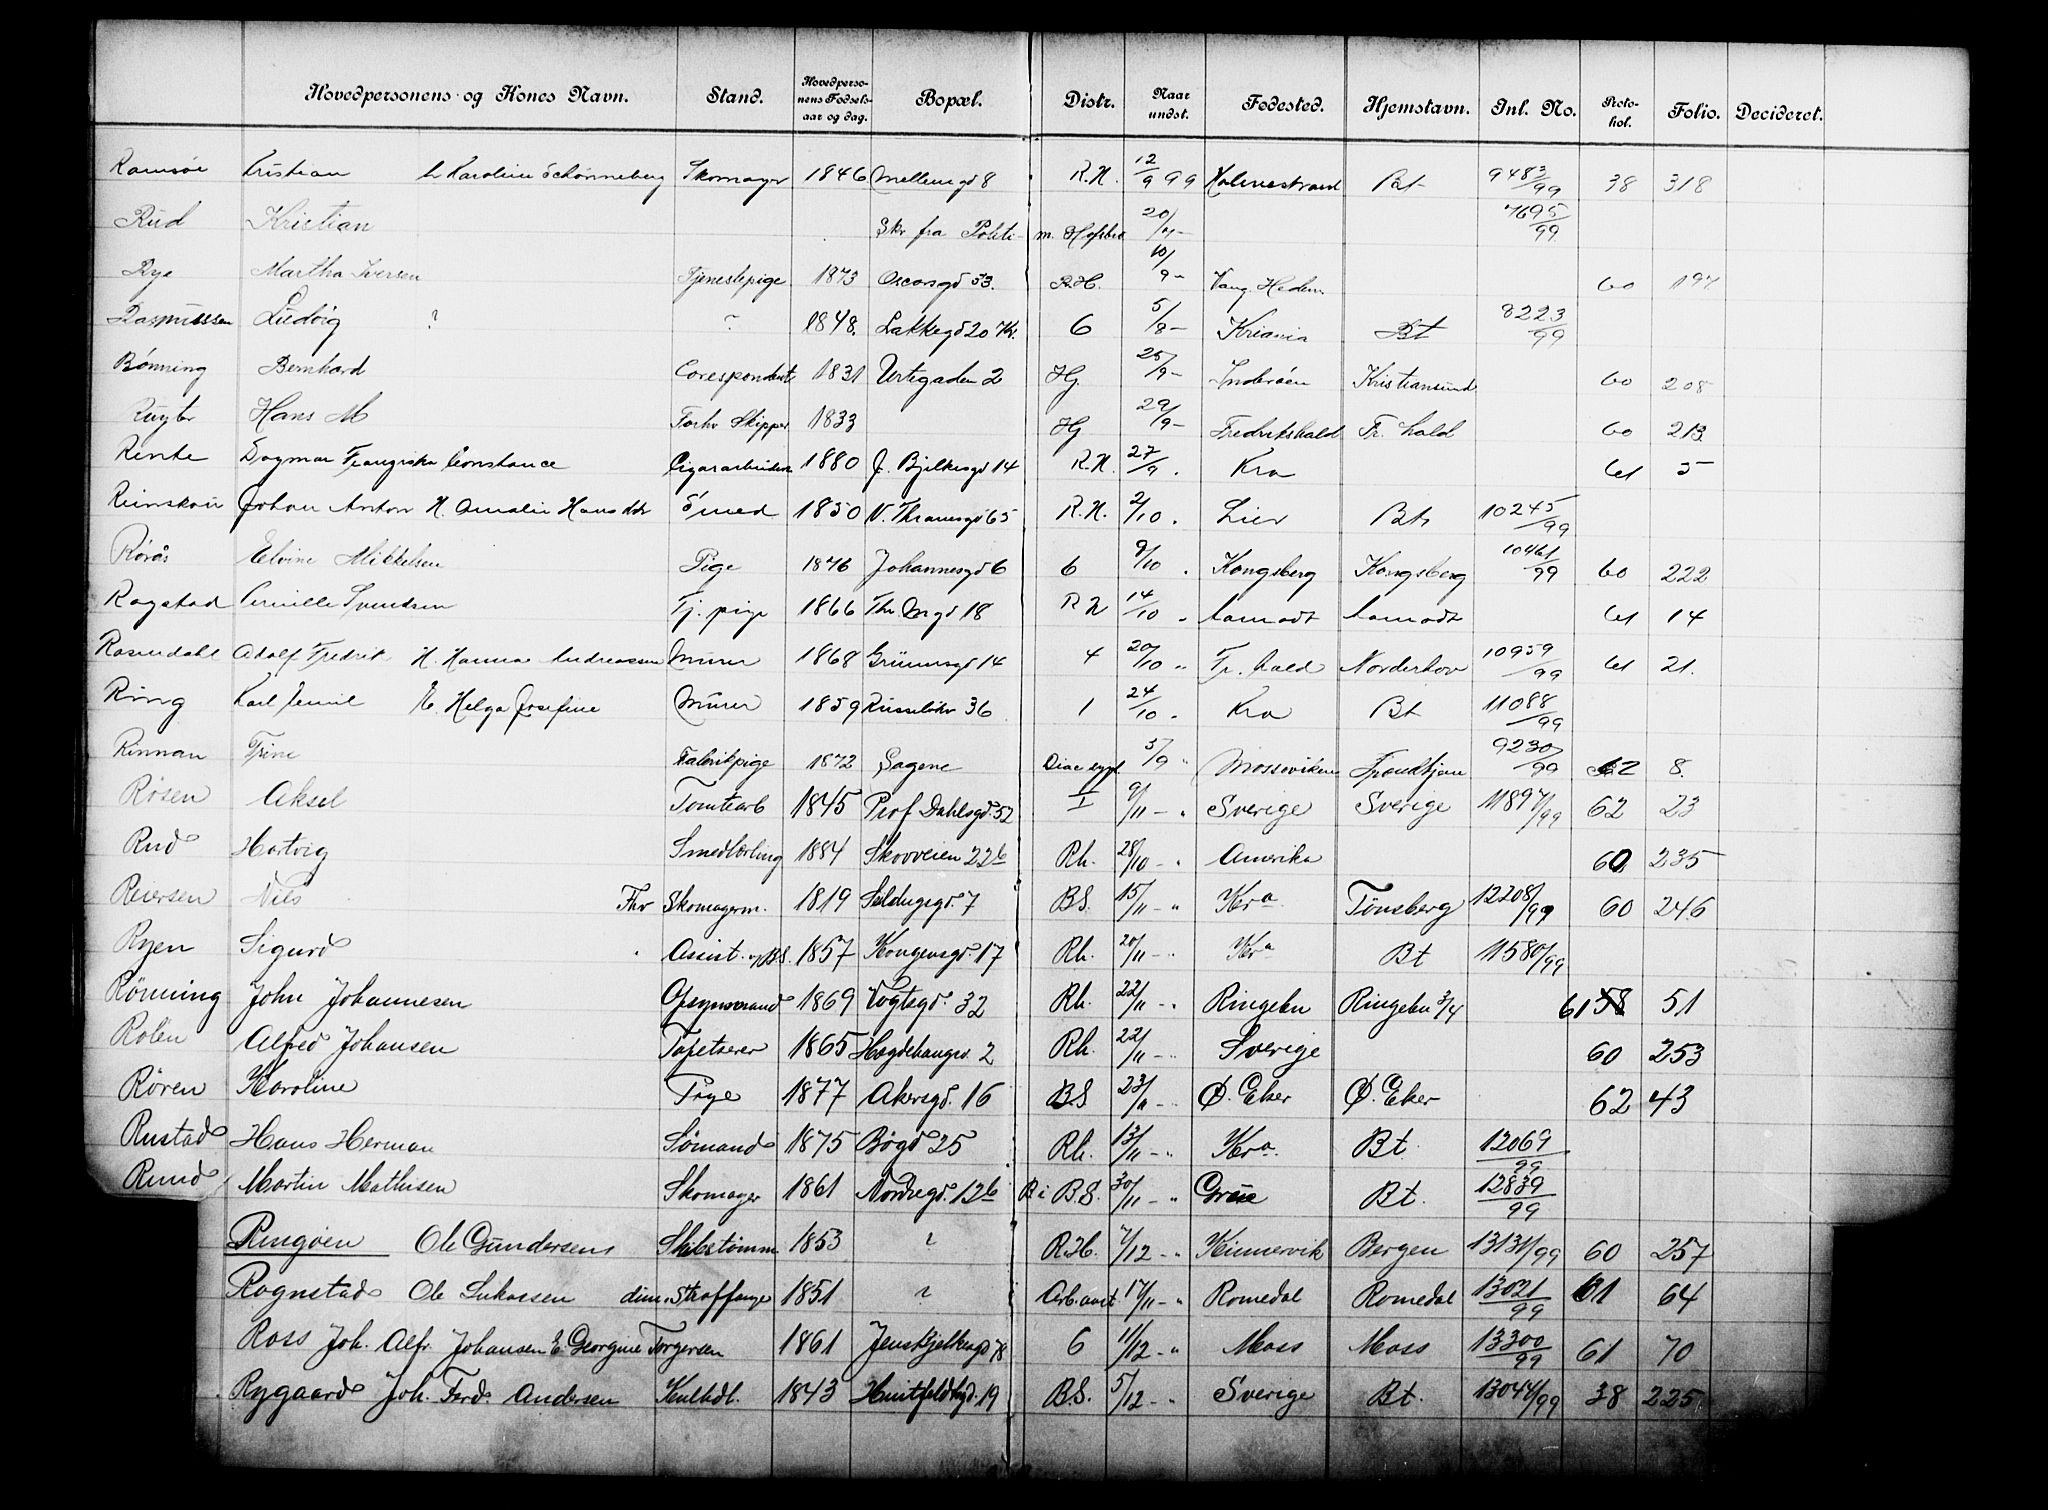 Hovedpersonens og Kones Navn. Stand. Hovedperso-nens Fødsels-aar og dag. Bopæl. Distr. Naar undst. Fødested. Hjemstavn. Inl. No. Proto-kol. Folio. Decideret.
Ramsøe Cristian h Karoline Schönneberg Skomager 1846 Mellemgd 8 R.H. 12/9 99 Holmestrand Bt 9483/99 38 318
Rud Kristian Skr fra Politi m. Hofsbro 20/ 7695/99
Rye Martha Iversen Tjenestepige 1873 Oscarsgd 33. R.H. 10/9 - Vang. Hedm. 60 197
Rasmussen Ludvig ? ? 1848. Lakkegd 20 6 5/8 - Kriania Bt 8223/99
Rönning Bernhard Corespondent 1831 Urtegaden 2 Hj. 25/9 - Inderøen Kristiansund 60 208
Hans M Forhv Skipper 1833 Hj 29/9 - Fredrikshald Fr. hald 60 213
Rinte Dagmar Franziska Constance Cigararbeiderske 1880 J. Bjelkesgd 14 R.H. 27/9 . Kra 61 5
Rimskou Johan Anton H. Amalie Smed 1850 V. Thranesgd 65 R.H. 2/10 . Lier Bt 10245/99
Rørås Elvine Mikkelsen Pige 1876 Johannesgd 6 6 9/10 . Kongsberg Kongsberg 10461/99 60 222
Rogstad Svendsen Tj. pige 1866 Thv Mgd 18 R H 14/10 . Aamodt Aamodt 61 14
Rosendahl Adolf Fredrik H. Hanna Andreassen Murer 1868 Grünersgd 14 4 20/10 " Fr. hald Norderhov 10959/99 61 21.
Ring Karl Emil E. Helga Josefine Murer 1859 Russeløkv 36 1 24/10 . Kra Bt 11088/99
Rinnan Trine Fabrikpige 1872 Sagene Diac sygh 5/9 " Mossoviken Trondhjem 9230/99 62 8.
Rosen Aksel Tomtearb 1845 Prof Dahlsgd. 52 I 9/11 - " Sverige Sverige 11897/99 62 23
Rud Hartvig Smedlærling 1884 Skovveien 22b Rh. 28/10 - " Amerika 60 235
Reiersen Nils Fhv Skomagerm. 1819 Seildugsgd. 7 BS. 15/11 - " Kra. Tønsberg 12208/99 60 246
Ryen Sigurd Assist. v/BS. 1857 Kongensgd. 17 Rh. 20/11 - " Kra Bt 11580/99
Rönning John Johannesen Opsynsmand 1869 Vogtsgd. 32 Rh. 22/11 - " Ringebu Ringebu 3/4 61 58 51
Rolén Alfred Johansen Tapetserer 1865 Hægdehaugsv. 2 Rh. 22/11 - " Sverige 60 253
Røren Karoline Pige 1877 Akersgd. 16 BS 23/11 - " Ø. Eker Ø. Eker 62 43
Rustad Hans Herman Sømand 1875 Bøgd 25 Rh. 13/11 - " Kra. Bt. 12069/99
Ruud Martin Mathisen Skomager 1861 Nordregd. 12b B i B.S. 30/11 - " Grue Bt. 12839/99
Ringøen Ole Gundersen Skibstømm. 1853 ? R.H. 7/12 - " Kinnervik Bergen 13131/99 60 257
Rognstad Ole Lukassen dim. Straffange 1851 ? Arb. anst 17/11 - " Romedal Romedal 13021/99 61 64
Ross Joh. Alfr. Johansen E. Georgine Torgersen 1861 Jens Bjelkesgd 78 6 11/12 - " Moss Moss 13300/99 61 70
Rygaard Joh. Ferd. Andersen Kulhdl. 1843 Huitfeldtsgd. 19 B.S. 5/12 - " Sverige Bt. 13044/99 38 225